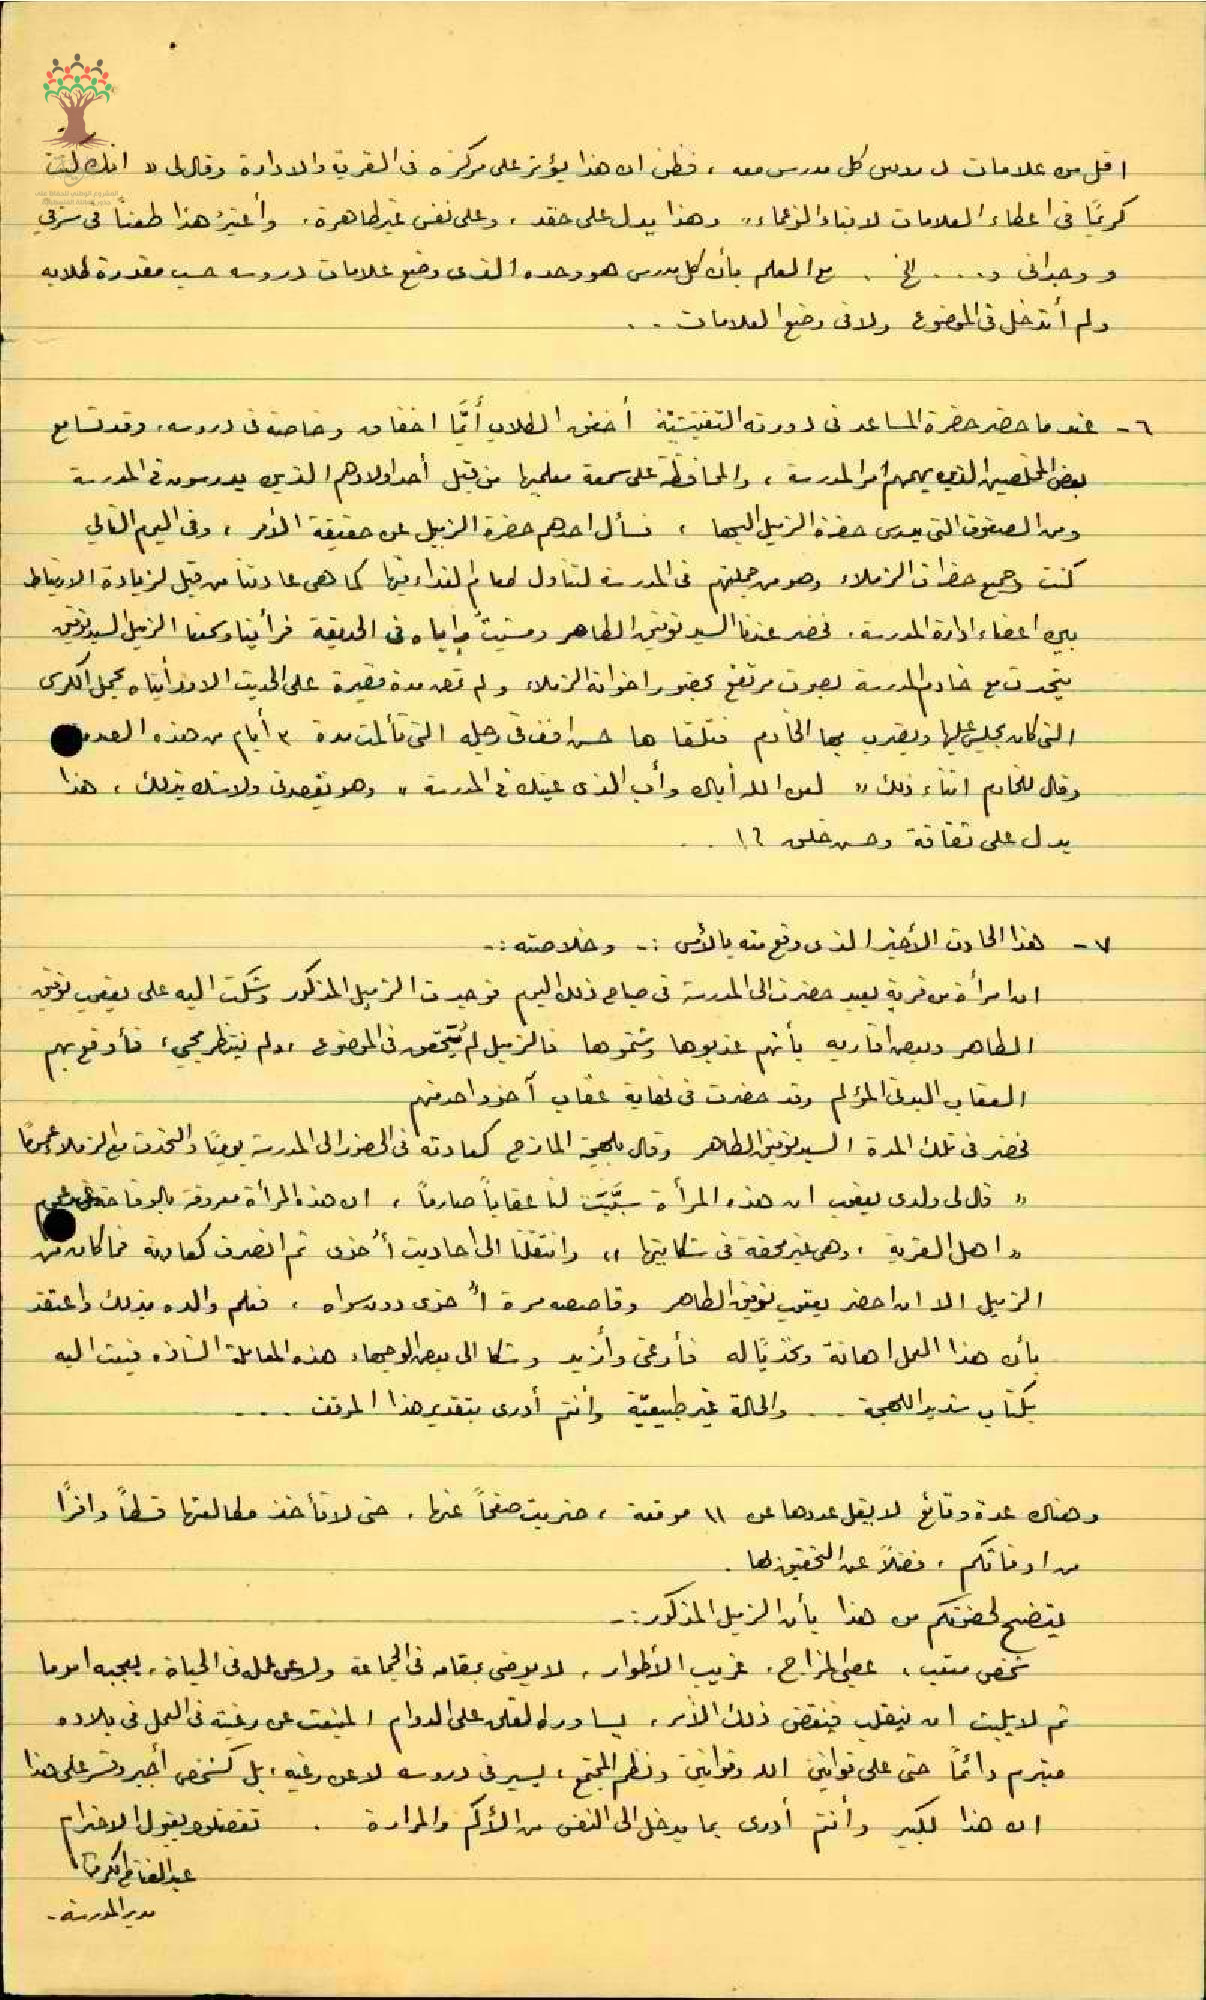 اقل من علامات دروس كل مدرس معه ، فظن ان هذا يؤثر على مركزه في القرية والادارة وقال لي « انك لست
كريمًا في اعطاء العلامات لابناء الزعماء » وهذا يدل على حقد ، وعلى نفس غير طاهرة ، وأعتبر هذا طعنًا في شرفي
و وجداني و .... الخ . مع العلم بأن كل مدرس هو وحده الذي وضع علامات دروسه حسب مقدرة طلابه
ولم أتدخل في الموضوع ولا في وضع العلامات . .
٦ - عندما حضر حضرة المساعد في دورته التفتيشيّة أخفق الطلاب أيَّما اخفاق وخاصة في دروسه ، وقد تسامع
بعض المخلصين الذين يهمهم امر المدرسة ، والمحافظة على سمعة معلميها من قبل أحد اولادهم الذين يدرسون في المدرسة
ومن الصفوف التي يدرس حضرة الزميل اليها ، فسأل احدهم حضرة الزميل عن حقيقة الأمر ، وفي اليوم التالي
كنت وجميع حضرات الزملاء وهو من جملتهم في المدرسة لتناول طعام الغداء فيها كما هي عادتنا من قبل لزيادة الارتباط
بين اعضاء ادارة المدرسة . فحضر عندنا السيد توفيق الطاهر ومشيتُ واياه في الحديقة فرأينا وسمعنا الزميل السيد توفيق
يتحدث مع خادم المدرسة بصوت مرتفع بحضور اخوانه الزملاء ولم تمض مدة قصيرة على الحديث الا ورأيناه يحمل الكرسي
التي كان يجلس عليها ويضرب بها الخادم فتلقاها حسن افندي في رجله التي تألمت مدة ٣ أيام من هذه الصدمة
وقال للخادم اثناء ذلك « لعن الله أباك وأب الذي عينك في المدرسة » وهو يقصدني ولا شك بذلك ، هذا
يدل على ثقافة وحسن خلق ؟! . .
٧ - هذا الحادث الأخير الذي وقع منه بالأمس :- وخلاصته :-
ان امرأة من قرية بعيد حضرت الى المدرسة في صباح ذلك اليوم فوجدت الزميل المذكور وشكت اليه على يعقوب توفيق
الطاهر وبعض اقاربه بأنهم عذبوها وشتموها فالزميل لم يتحقق في الموضوع ، ولم ينتظر مجيء ، فأوقع بهم
العقاب البدني المؤلم وقد حضرت في نهاية عقاب آخر واحد منهم
فحضر في تلك المدة السيد توفيق الطاهر وقال بلهجة المازح كعادته في الحضور الى المدرسة يوميًا والتحدث مع الزملاء عمومًا
« قال لي ولدي يعقوب ان هذه المرأة سبَّبت لنا عقاباً صارماً ، ان هذه المرأة معروفة بالوقاحة
« اهل القرية ، وهي غير محقة في شكايتها » وانتقلنا الى احاديث أُخرى ثم انصرف كعادته فما كان من
الزميل الا ان احضر يعقوب توفيق الطاهر وقاصصه مرة أُخرى دون سواه ، فعلم والده بذلك واعتقد
بأن هذا العمل اهانة وتحديًا له فأرغى وأزبد وشكا الى بعض الوجهاء هذه المعاملة الشاذه فبعث اليه
بكتاب شديد اللهجة . . . والحالة غير طبيعيّة وأنتم أدرى بتقدير هذا الموقف . . .
وهناك عدة وقائع لا يقل عددها عن ١١ موقعة ، ضربت صفحاً عنها ، حتى لا تأخذ مطالعتها قسطاً وافرًا
من اوقاتكم ، فضلاً عن التحقيق لها .
يتضح لحضرتكم من هذا بأن الزميل المذكور :-
شخص متعب ، عصبي المزاج ، غريب الأطوار ، لا يرضى بمقامه في الجماعة ولا عن عمله في الحياة ، يعجبه امر ما
ثم لا يلبث ان ينقلب فينقض ذلك الأمر ، يساوره القلق على الدوام المنبعث عن رغبته في العمل في بلاده
متبرم دائمًا حتى على قوانين الله وقوانين ونظم المجتمع ، يسير في دروسه لا عن رغبه ، بل كشخص أجبر وقسر على هذا
ان هذا لكبير وأنتم أدرى بما يدخل الى النفس من الألم والمرارة . تفضلوا بقبول الاحترام
عبد الفتاح الكرمي
مدير المدرسة -